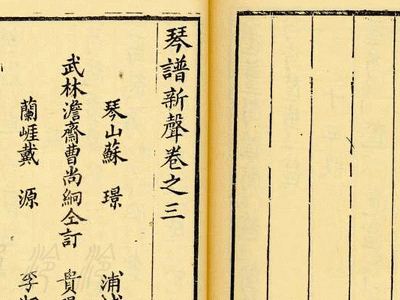 琴譜新聲卷之三
琴山蘇 璟
武林澹齋曹尚絅仝訂
蘭崖戴 源